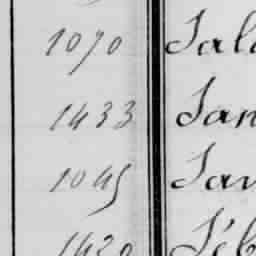 1070 Sal
1433 San
1045 San
1420 Séb